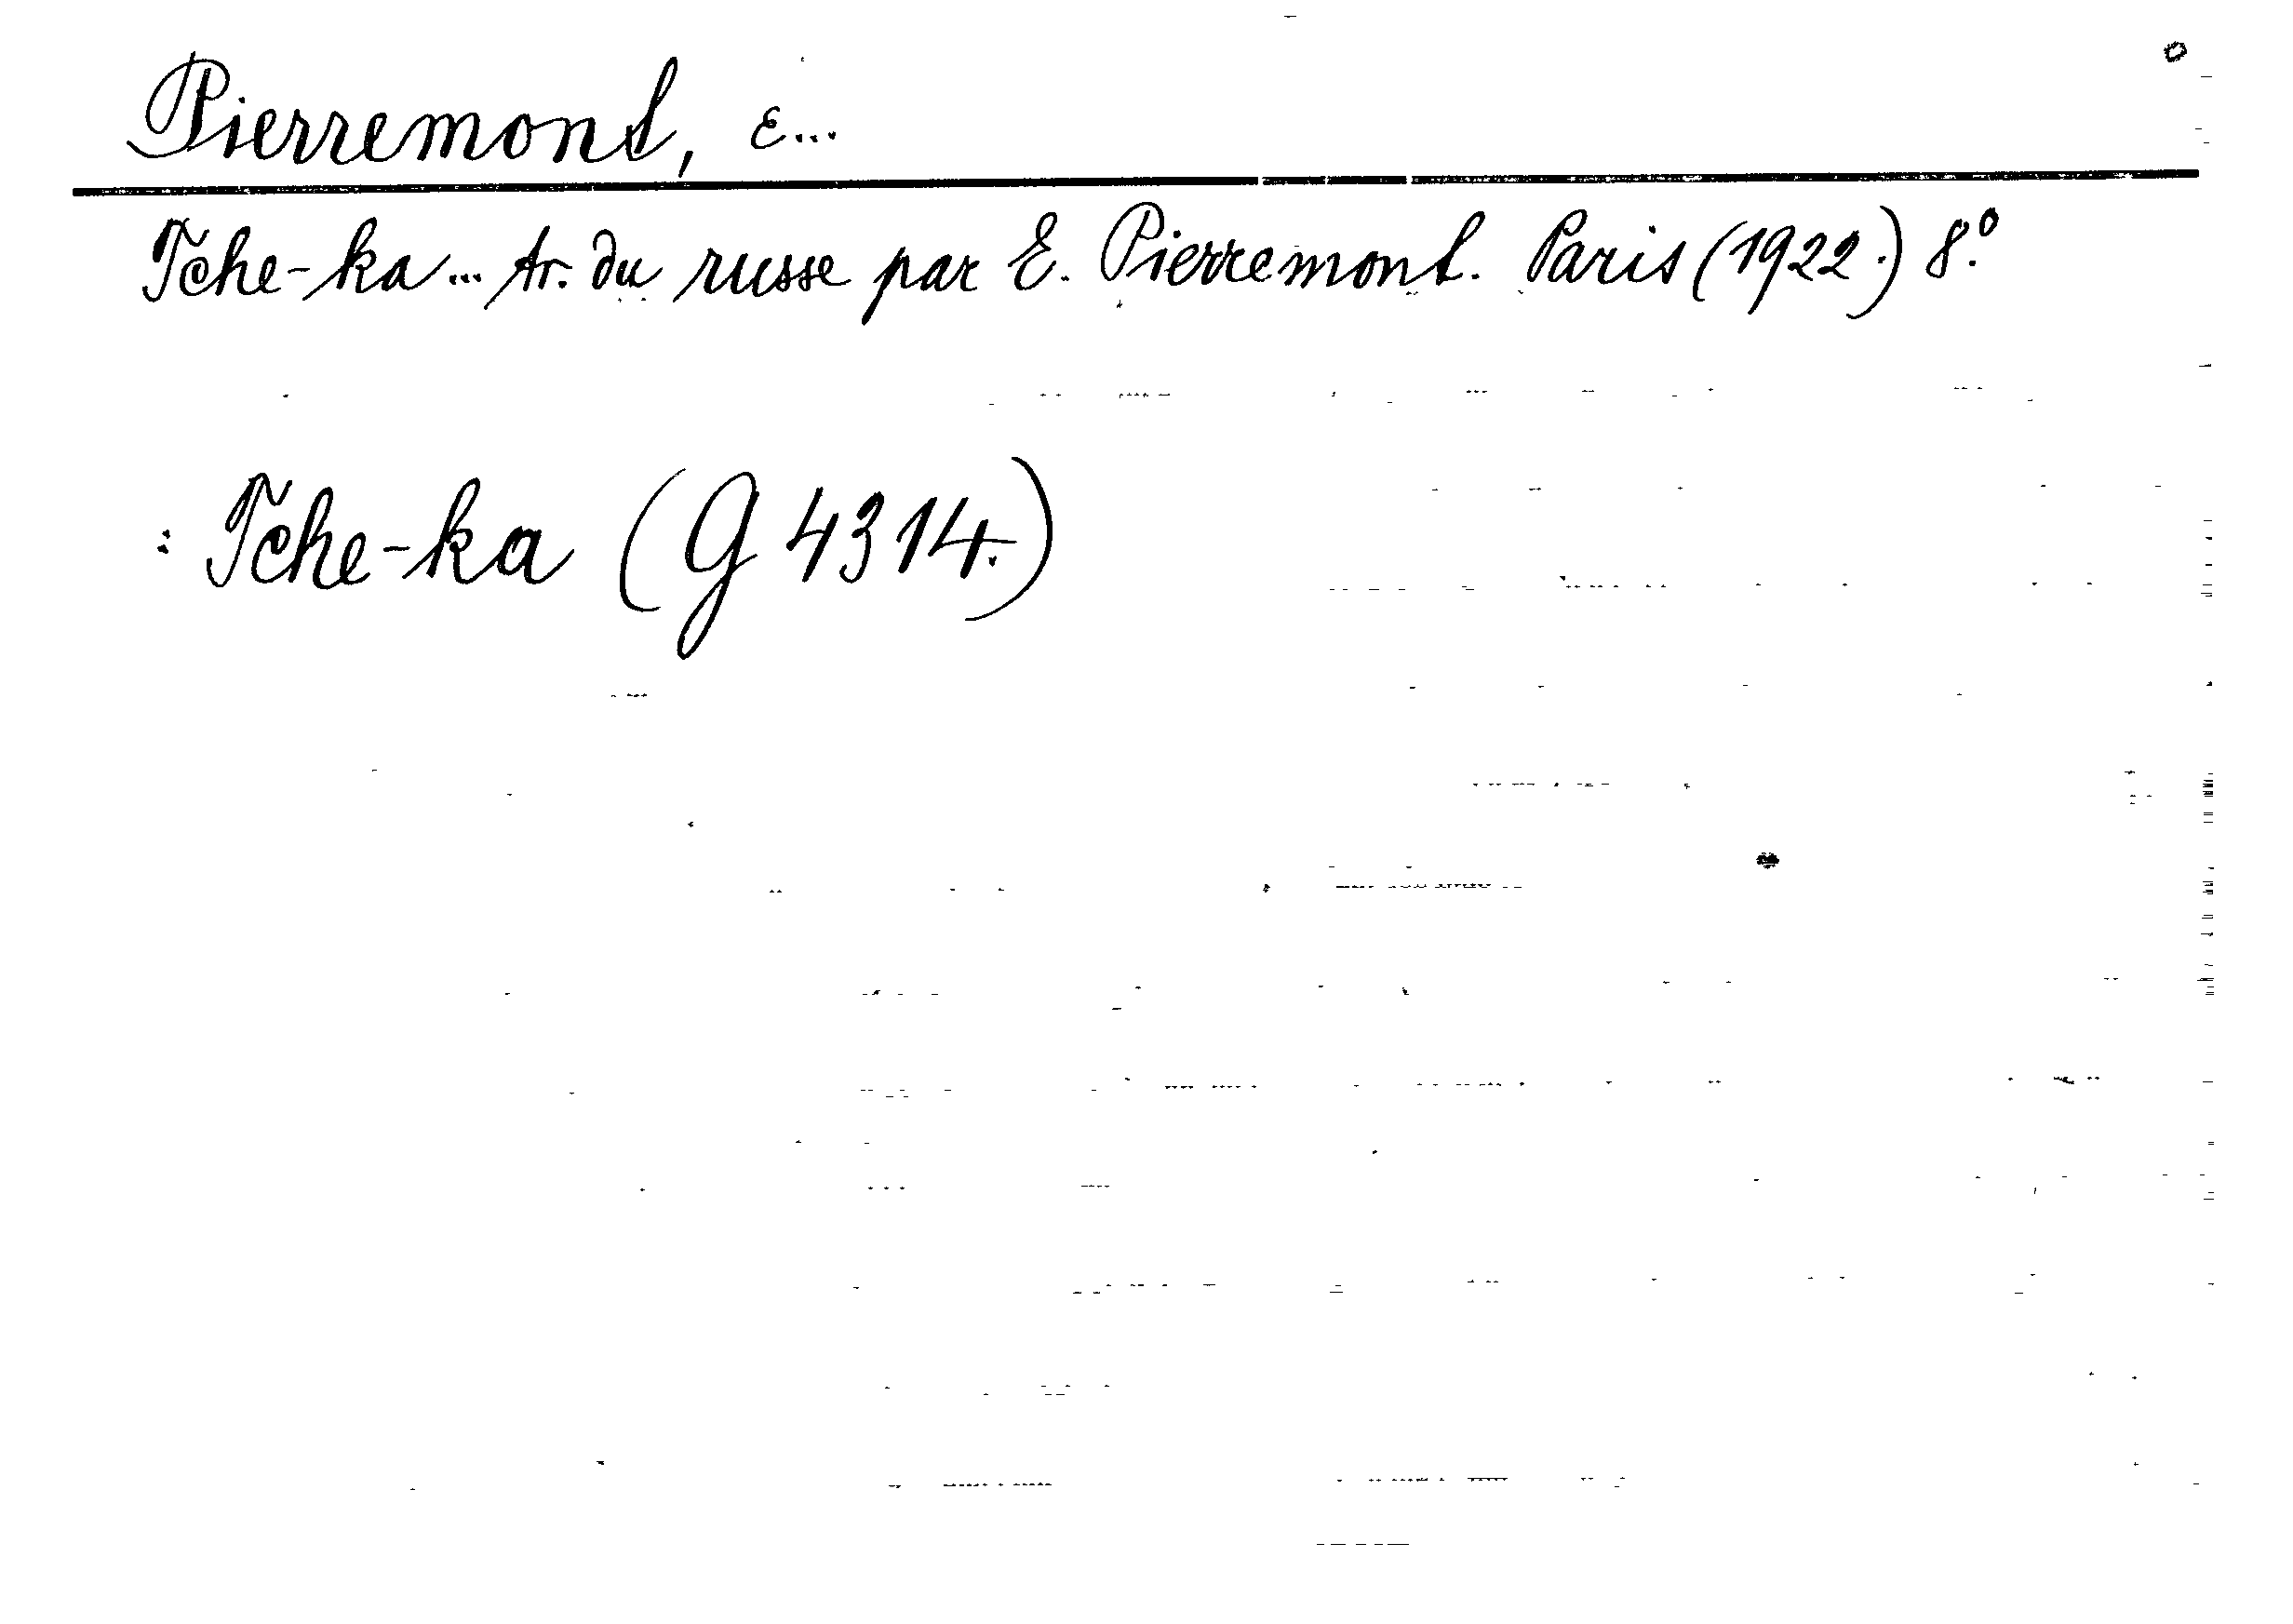 Pierremont, E...
Tche-ka... tr. du russe par E. Pierremont. Paris (1922.) 8.º
: Tche-ka (G 4314.)